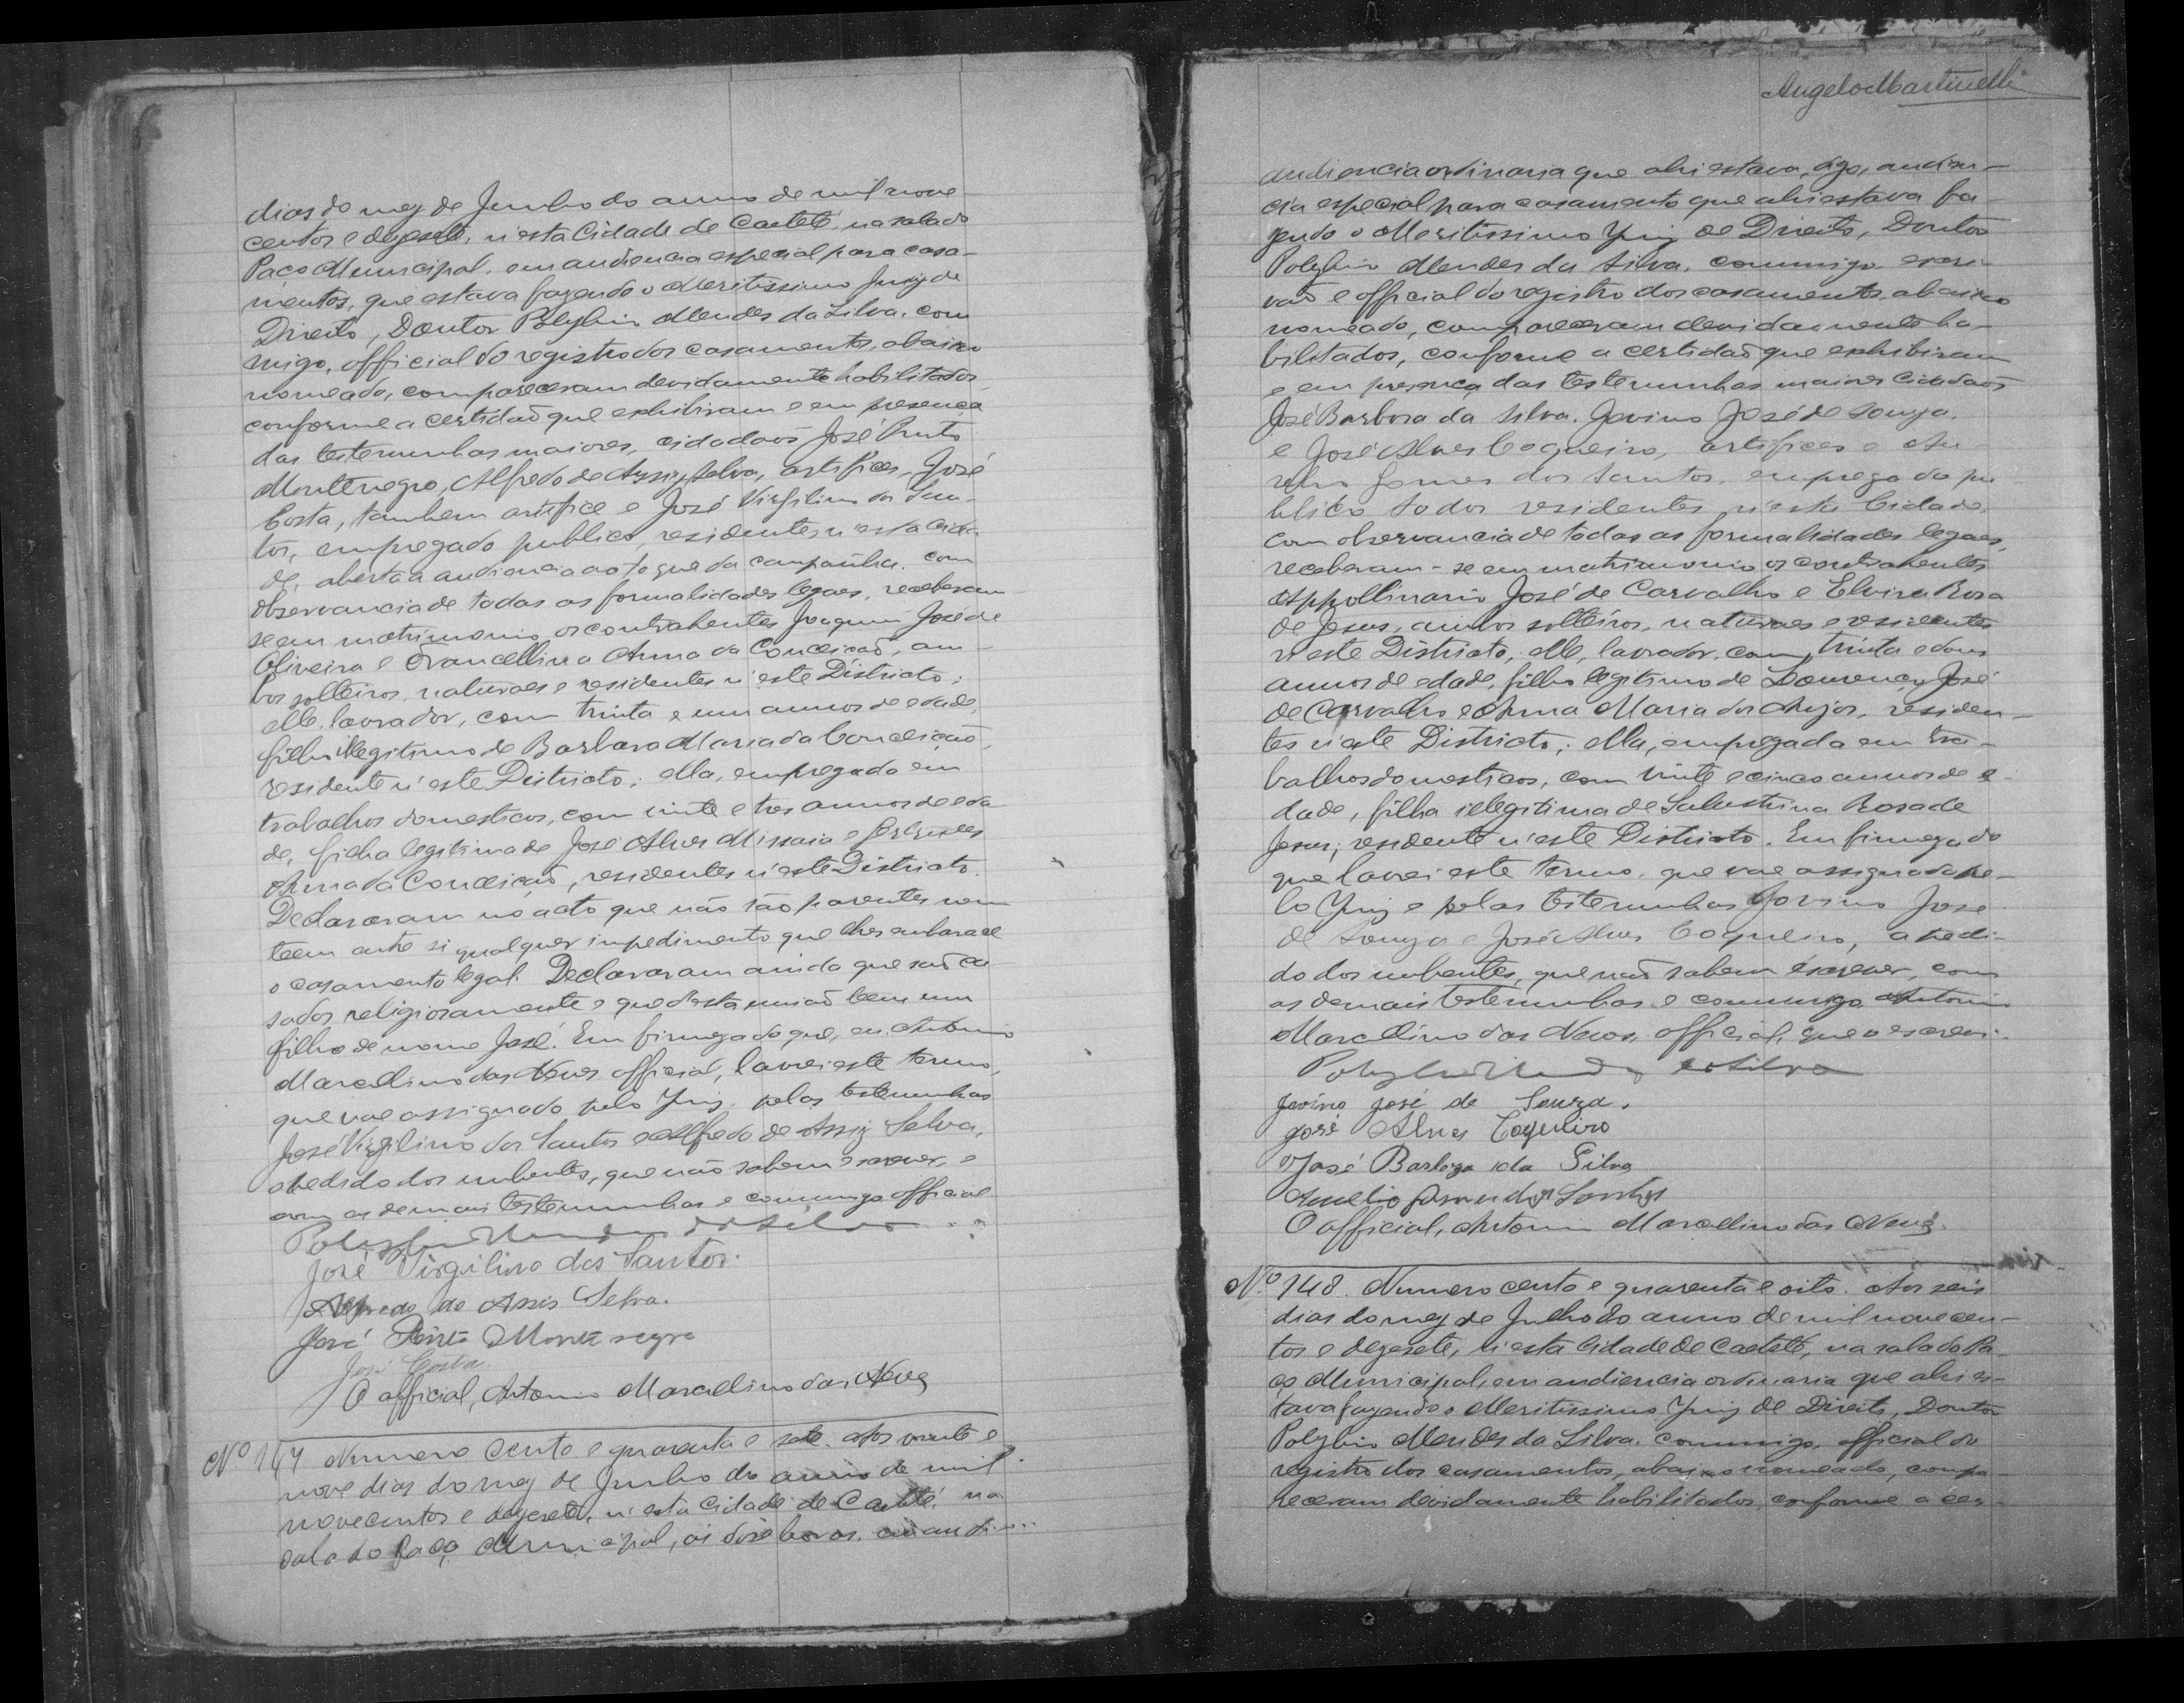 dias do mez de Junho do anno de mil nove-
centos e dezesete, n'esta Cidade de Caeteté, na sala do
Paço Municipal, em audiencia especial para casa-
mentos, que estava fazendo o Meritissimo Juiz de
Direito, Doutor Polybio Mendes da Silva, com
migo, official do registro dos casamentos, abaixo
nomeado, compareceram devidamente habilitados,
conforme a certidaõ que exhibiram e em presença
das testemunhas maiores, cidadaõs José Pinto
Montenegro, Alfredo de Assiz Selva, artifices, José
Costa, tambem artifice e José Virgilino dos San-
tos, empregado publico, residentes n'esta Cida-
de, aberta a audiencia ao toque da campainha, com
observancia de todas as formalidades legaes, receberam
se em matrimonio os contrahentes Joaquim José de
Oliveira e Francellina Anna da Conceicaõ, am-
bos solteiros, naturaes e residentes n'este Districto;
elle, lavrador, com trinta e um annos de edade
filho illegitimo de Barbara Maria da Conceição,
residente n'este Districto; ella, empregada em
trabalhos domesticos, com vinte e tres annos de eda
de, filha legitima de José Alves Missaia e Gertrudes
Anna da Conceição, residentes n'este Districto.
Declararam no acto que não são parentes nem
teem entre si qualquer impedimento que lhes embarace
o casamento legal. Declararam ainda que saõ ca
sados religiosamente e que desta uniaõ teem um
filho de nome José. Em firmeza do que, eu Antonio
Marcellino das Neves official, lavrei este termo,
que vae assignado pelo Juiz, pelas testemunhas
José Virgilino dos Santos e Alfredo de Assiz Selva,
a pedido dos nubentes, que não sabem escrever, e
com as demais testemunhas e commigo official
Polybio Mendes da Silva
José Virgilino dos Santos.
Alfredo de Assis Selva.
José Pinto Montenegro
José Costa.
O official, Antonio Marcellino das Neves
Nº 147 Numero cento e quarenta e sete. Aos vinte e
nove dias do mez de Junho do anno de mil
novecentos e dezesete, n'esta Cidade de Caeteté, na
sala do Paço Municipal, ás doze horas, em
Angelo Martinelli
audiencia ordinaria que ahi estava, digo, audien-
cia especial para casamento que ahi estava fa-
zendo o Meritissimo Juiz de Direito, Doutor
Polybio Mendes da Silva, commigo escri-
vaõ e official do registro dos casamentos, abaixo
nomeado, compareceram devidamente ha-
bilitados, conforme a certidaõ que exhibiram
e em presença das testemunhas maiores cidadaõs
José Barbosa da Silva, Jovino José de Souza,
e José Alves Coqueiro, artifices e Au-
relio Gomes dos Santos, empregado pu
blico, todos residentes n'esta Cidade,
com observancia de todas as formalidades legaes,
receberam-se em matrimonio os contrahentes
Appollinario José de Carvalho e Elvira Rosa
de Jesus, ambos solteiros, naturaes e residentes
n'este Districto; elle, lavrador, com trinta e dous
annos de edade, filho legitimo de Lourenço José
de Carvalho e Anna Maria dos Anjos, residen-
tes n'este Districto; ella, empregada em tra-
balhos domesticos, com vinte e cinco annos de e-
dade, filha illegitima de Salustrina Rosa de
Jesus, residente n'este Districto. Em firmeza do
que lavrei este termo, que vae assignado pe-
lo Juiz e pelas testemunhas Jovino José
de Souza e José Alves Coqueiro, a pedi-
do dos nubentes, que naõ sabem escrever, com
as demais testemunhas e commigo Antonio
Marcellino das Neves, official, que o escrevi.
Polybio Mendes da Silva
Jovino José de Souza.
José Alves Coqueiro
José Barboza da Silva
Aurelio Gomes dos Santos
O official, Antonio Marcellino das Neves
Nº 148. Numero cento e quarenta e oito. Aos seis
dias do mez de Julho do anno de mil novecen-
tos e dezesete, n'esta Cidade de Caeteté, na sala do Pa
ço Municipal, em audiencia ordinaria que ahi es-
tava fazendo o Meritissimo Juiz de Direito, Doutor
Polybio Mendes da Silva, commigo, official do
registro dos casamentos, abaixo nomeado, compa
receram devidamente habilitados, conforme a cer-